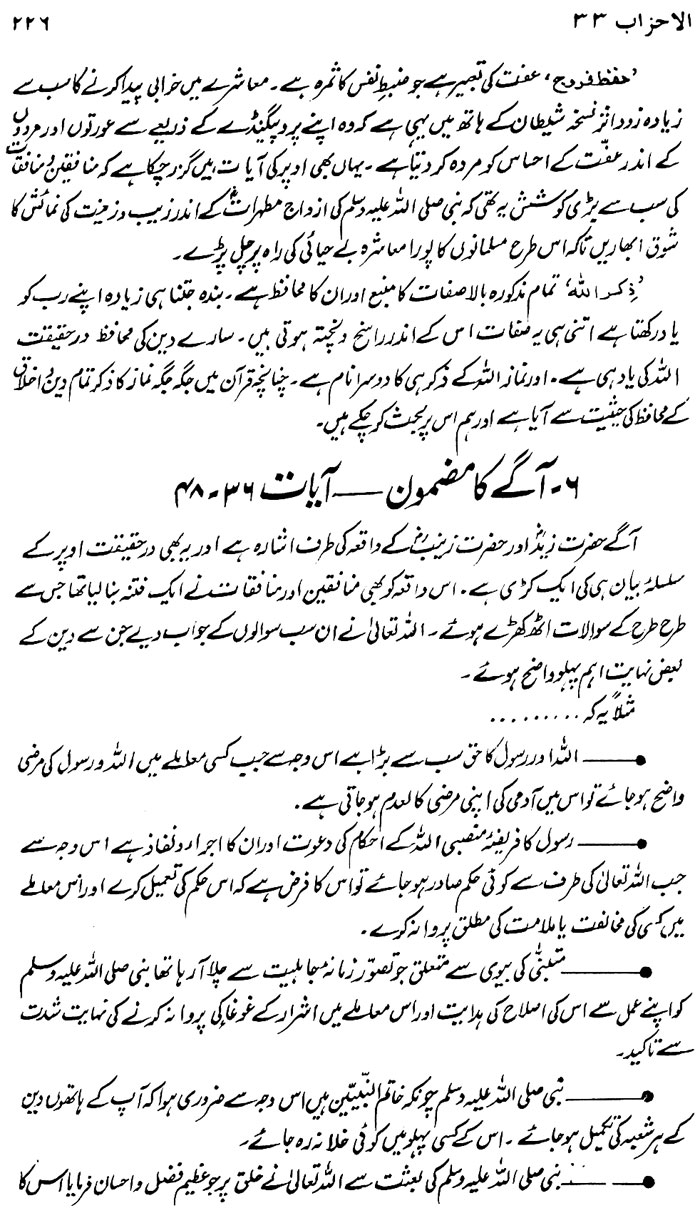 الاحزاب ۳۳
۲۲۶
’حفظ فروج‘، عفت کی تعبیر ہے جو ضبطِ نفس کا ثمرہ ہے۔ معاشرے میں خرابی پیدا کرنے کا سب سے
زیادہ زود اثر نسخہ شیطان کے ہاتھ میں یہی ہے کہ وہ اپنے پروپیگنڈے کے ذریعے سے عورتوں اور مردوں
کے اندر عفّت کے احساس کو مردہ کر دیتا ہے۔ یہاں بھی اوپر کی آیات میں گزر چکا ہے کہ منافقین و منافقات
کی سب سے بڑی کوشش یہ تھی کہ نبی صلی اللہ علیہ وسلم کی ازواج مطہراتؓ کے اندر زیب و زینت کی نمائش کا
شوق ابھاریں تاکہ اس طرح مسلمانوں کا پورا معاشرہ بے حیائی کی راہ پر چل پڑے۔
’ذِکر اللہ‘ تمام مذکورہ بالا صفات کا منبع اور ان کا محافظ ہے۔ بندہ جتنا ہی زیادہ اپنے رب کو
یاد رکھتا ہے اتنی ہی یہ صفات اس کے اندر راسخ و پختہ ہوتی ہیں۔ سارے دین کی محافظ درحقیقت
اللہ کی یاد ہی ہے۔ اور نماز اللہ کے ذکر ہی کا دوسرا نام ہے۔ چنانچہ قرآن میں جگہ جگہ نماز کا ذکر تمام دین و اخلاق
کے محافظ کی حیثیت سے آیا ہے اور ہم اس پر بحث کر چکے ہیں۔
۶۔ آگے کا مضمون — آیات ۳۶۔۴۸
آگے حضرت زیدؓ اور حضرت زینبؓ کے واقعہ کی طرف اشارہ ہے اور یہ بھی درحقیقت اوپر کے
سلسلۂ بیان ہی کی ایک کڑی ہے۔ اس واقعہ کو بھی منافقین اور منافقات نے ایک فتنہ بنا لیا تھا جس سے
طرح طرح کے سوالات اٹھ کھڑے ہوئے۔ اللہ تعالیٰ نے ان سب سوالوں کے جواب دیے جن سے دین کے
بعض نہایت اہم پہلو واضح ہوئے۔
مثلاً یہ کہ .........
●—— اللہ اور رسول کا حق سب سے بڑا ہے اس وجہ سے جب کسی معاملے میں اللہ و رسول کی مرضی
واضح ہو جائے تو اس میں آدمی کی اپنی مرضی کالعدم ہو جاتی ہے۔
●—— رسول کا فریضۂ منصبی اللہ کے احکام کی دعوت اور ان کا اجراء و نفاذ ہے اس وجہ سے
جب اللہ تعالیٰ کی طرف سے کوئی حکم صادر ہو جائے تو اس کا فرض ہے کہ اس حکم کی تعمیل کرے اور اس معاملے
میں کسی کی مخالفت یا ملامت کی مطلق پروا نہ کرے۔
●—— متبنّٰی کی بیوی سے متعلق جو تصوّر زمانۂ جاہلیت سے چلا آ رہا تھا نبی صلی اللہ علیہ وسلم
کو اپنے عمل سے اس کی اصلاح کی ہدایت اور اس معاملے میں اشرار کے غوغا کی پروا نہ کرنے کی نہایت شدت
سے تاکید۔
●—— نبی صلی اللہ علیہ وسلم چونکہ خاتم النبیّین ہیں اس وجہ سے ضروری ہوا کہ آپ کے ہاتھوں دین
کے ہر شعبہ کی تکمیل ہو جائے۔ اس کے کسی پہلو میں کوئی خلا نہ رہ جائے۔
●—— نبی صلی اللہ علیہ وسلم کی بعثت سے اللہ تعالیٰ نے خلق پر جو عظیم فضل و احسان فرمایا اس کا